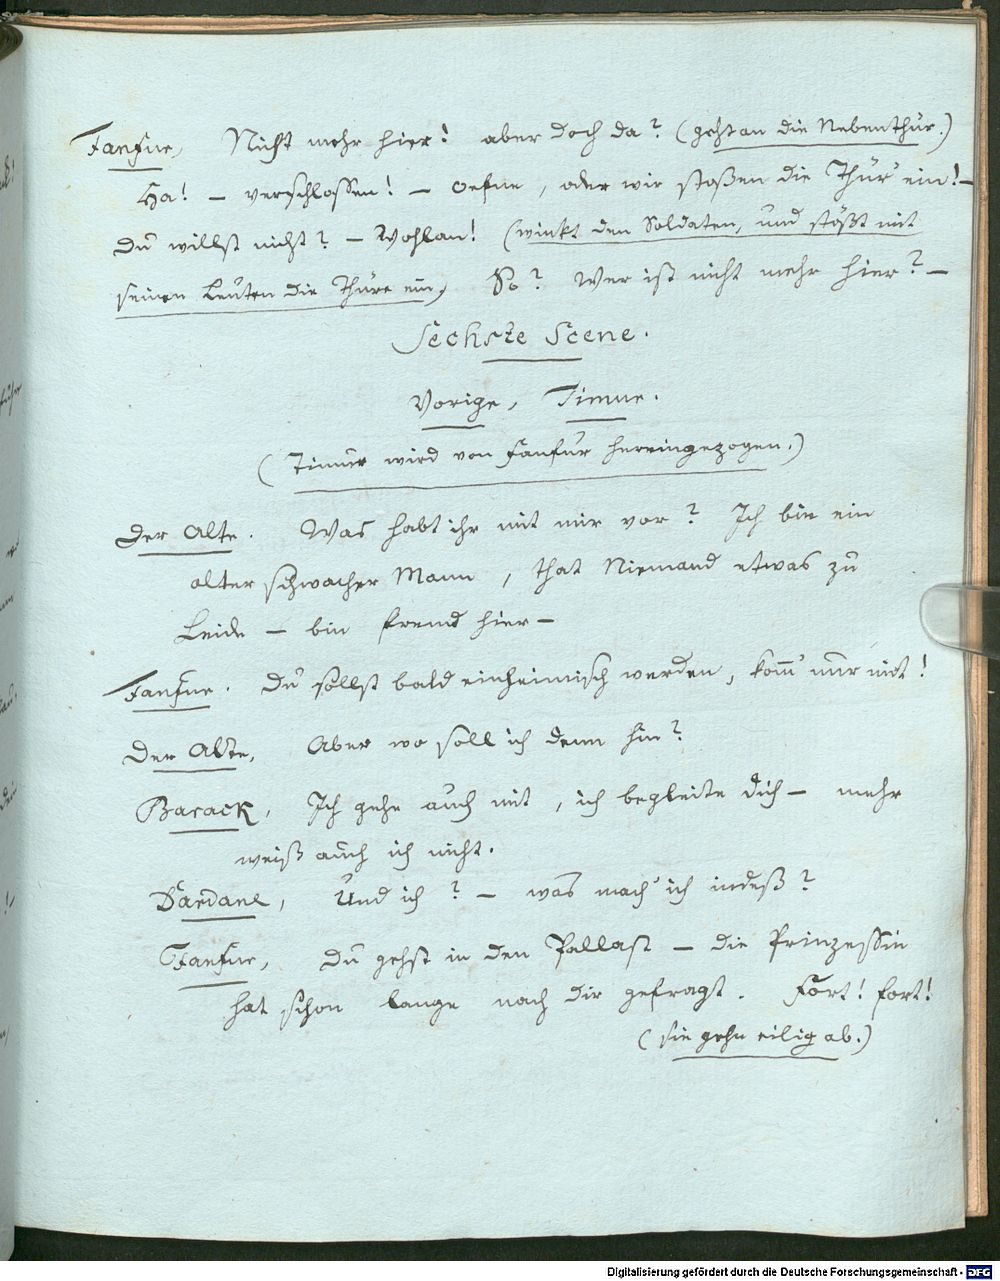 Fanfur, Nicht mehr hier! aber doch da? (geht an die Nebenthür.)
Ha! – verschlossen! – oefne, oder wir stoßen die Thür ein! –
Du willst nicht? – Wohlan! (winkt den Soldaten, und stößt mit
seinen Leuten die Thüre ein, So? Wer ist nicht mehr hier? –
Sechste Scene.
Vorige, Timur.
(Timur wird von Fanfur hereingezogen.)
Der Alte. Was habt ihr mit mir vor? Ich bin ein
alter schwacher Mann, that Niemand etwas zu
Leide – bin fremd hier –
Fanfur. Du sollst bald einheimisch werden, kom̄ nur mit!
Der Alte, Aber wo soll ich denn hin?
Barack, Ich gehe auch mit, ich begleite dich – mehr
weiß auch ich nicht.
Dardane, Und ich? – was mach' ich indeß?
Fanfur, Du gehst in den Pallast – die Prinzessin
hat schon lange nach dir gefragt. Fort! fort!
(sie gehn eilig ab.)
Digitalisierung gefördert durch die Deutsche Forschungsgemeinschaft - DFG